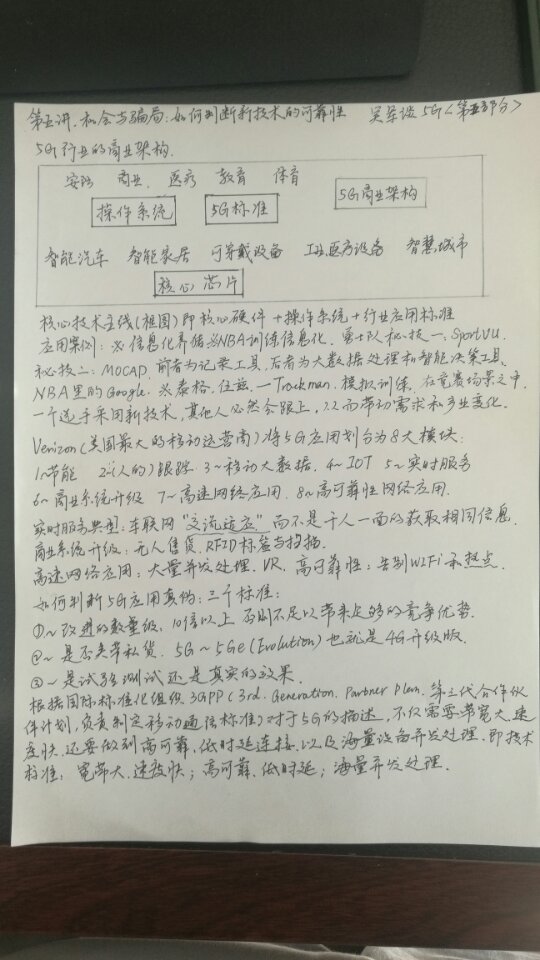 第五讲.机会与骗局:如何判断新技术的可靠性 吴军谈5G<第五部分>
5G行业的商业架构.
安防 商业. 医疗 教育 体育
5G商业架构
操作系统 5G标准
智能汽车 智能家居 可穿戴设备 工业医疗设备 智慧城市
核心芯片
核心技术主线(祖国)即核心硬件+操作系统+行业应用标准
应用案例: ※信息化养猪※NBA训练信息化. 勇士队秘技一:SportVU.
秘技二:MOCAP. 前者为记录工具,后者为大数据处理和智能决策工具.
NBA里的Google. ※泰格.伍兹—Trackman.模拟训练. 在竞赛场景之中,
一个选手采用新技术,其他人必然会跟上,从而带动需求和产业变化.
Verizon(美国最大的移动运营商)将5G应用划分为8大模块:
1~节能 2~(人的)跟踪 3~移动大数据. 4~IOT 5~实时服务
6~商业系统升级 7~高速网络应用. 8~高可靠性网络应用.
实时服务典型:车联网"交流适应"而不是千人一面的获取相同信息.
商业系统升级:无人售货.RFID标签与扫描.
高速网络应用:大量并发处理.VR. 高可靠性:告别WIFI和热点.
如何判断5G应用真伪:三个标准:
①~改进的数量级. 10倍以上 否则不足以带来足够的竞争优势.
②~是否夹带私货. 5G~5Ge(Evolution)也就是4G升级版.
③~是试验测试还是真实的效果.
根据国际标准化组织3GPP(3rd. Generation. Partner Plan. 第三代合作伙
伴计划,负责制定移动通信标准)对于5G的描述,不仅需要带宽大.速
度快.还要做到高可靠.低时延连接.以及海量设备并发处理.即技术
标准:宽带大.速度快;高可靠.低时延;海量并发处理.